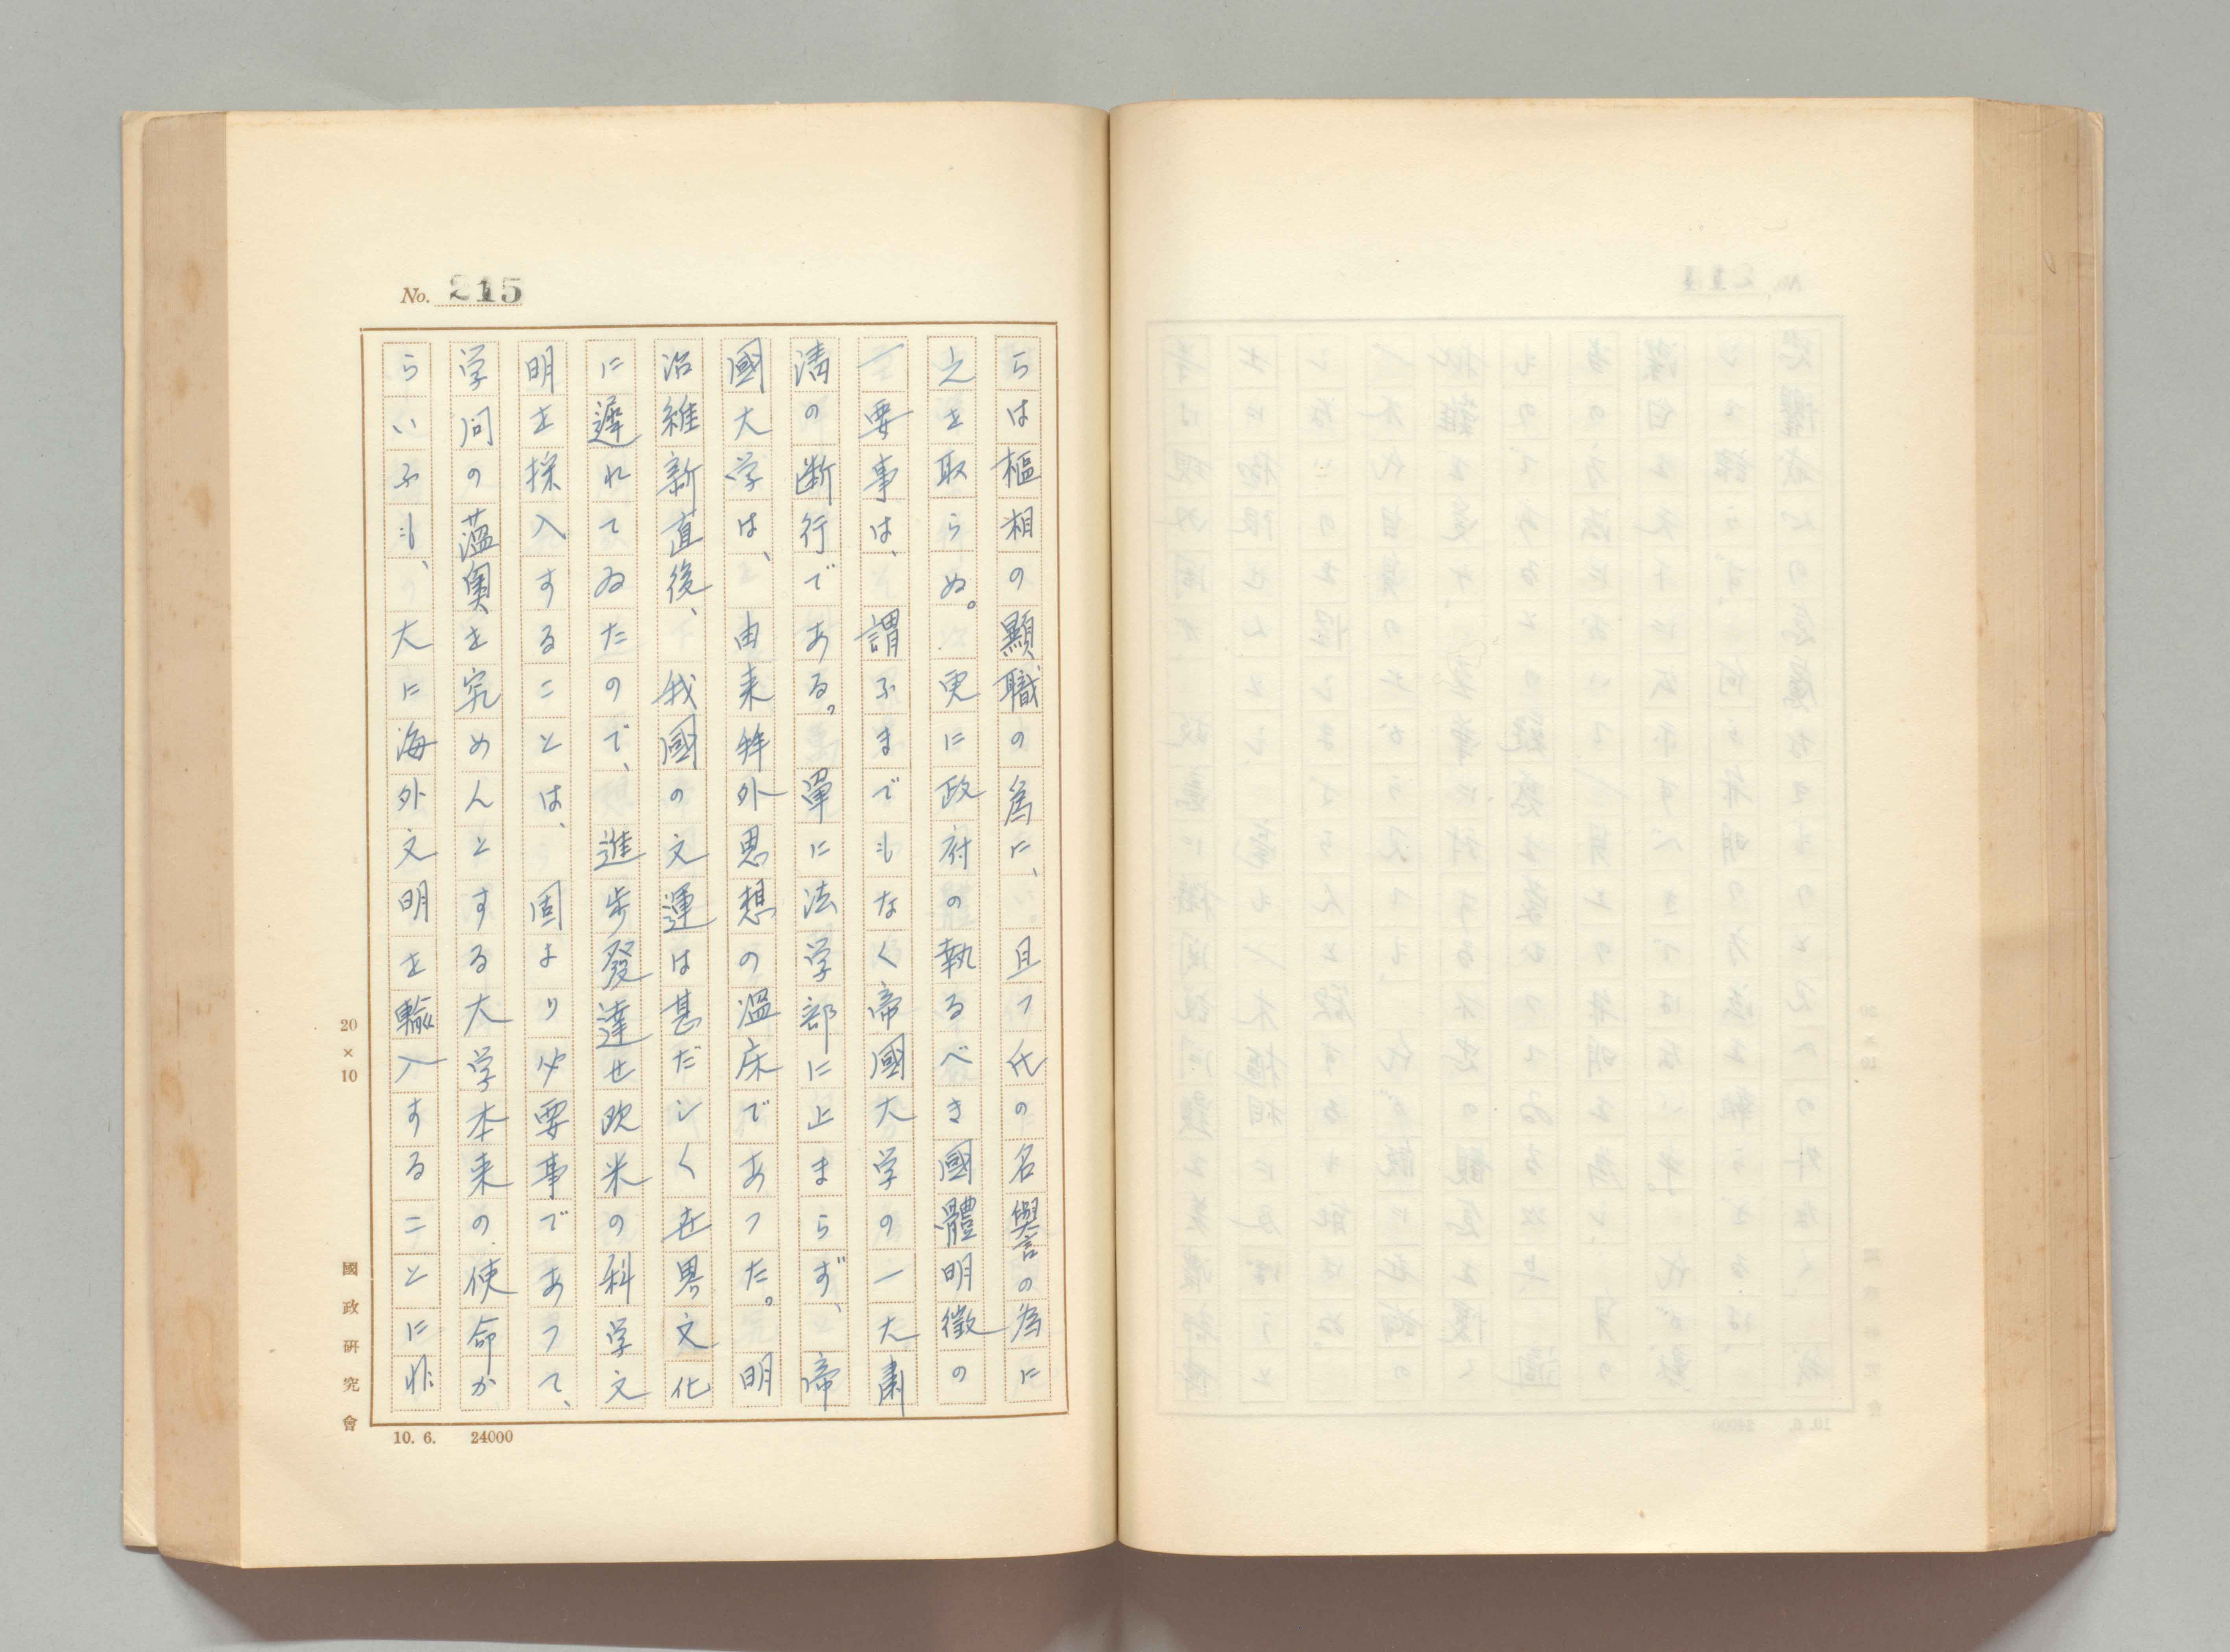 No. 215
らは樞相の顯職の為に、且つ氏の名譽の為に
之を取らぬ。更に政府の執るべき國體明徴の
一要事は、謂ふまでもなく帝國大学の一大粛
清の断行である。單に法学部に止まらず、帝
國大学は、由来牪外思想の溫床であつた。明
治維新直後、我國の文運は甚だしく世界文化
に遅れてゐたので、進歩發達せ欧米の科学文
明を採入することは、固より必要事であつて、
学問の薀奧を究めんとする大学本来の使命か
らいふも、大に海外文明を輸入することに非
20×10
國政研究會
10. 6. 24000